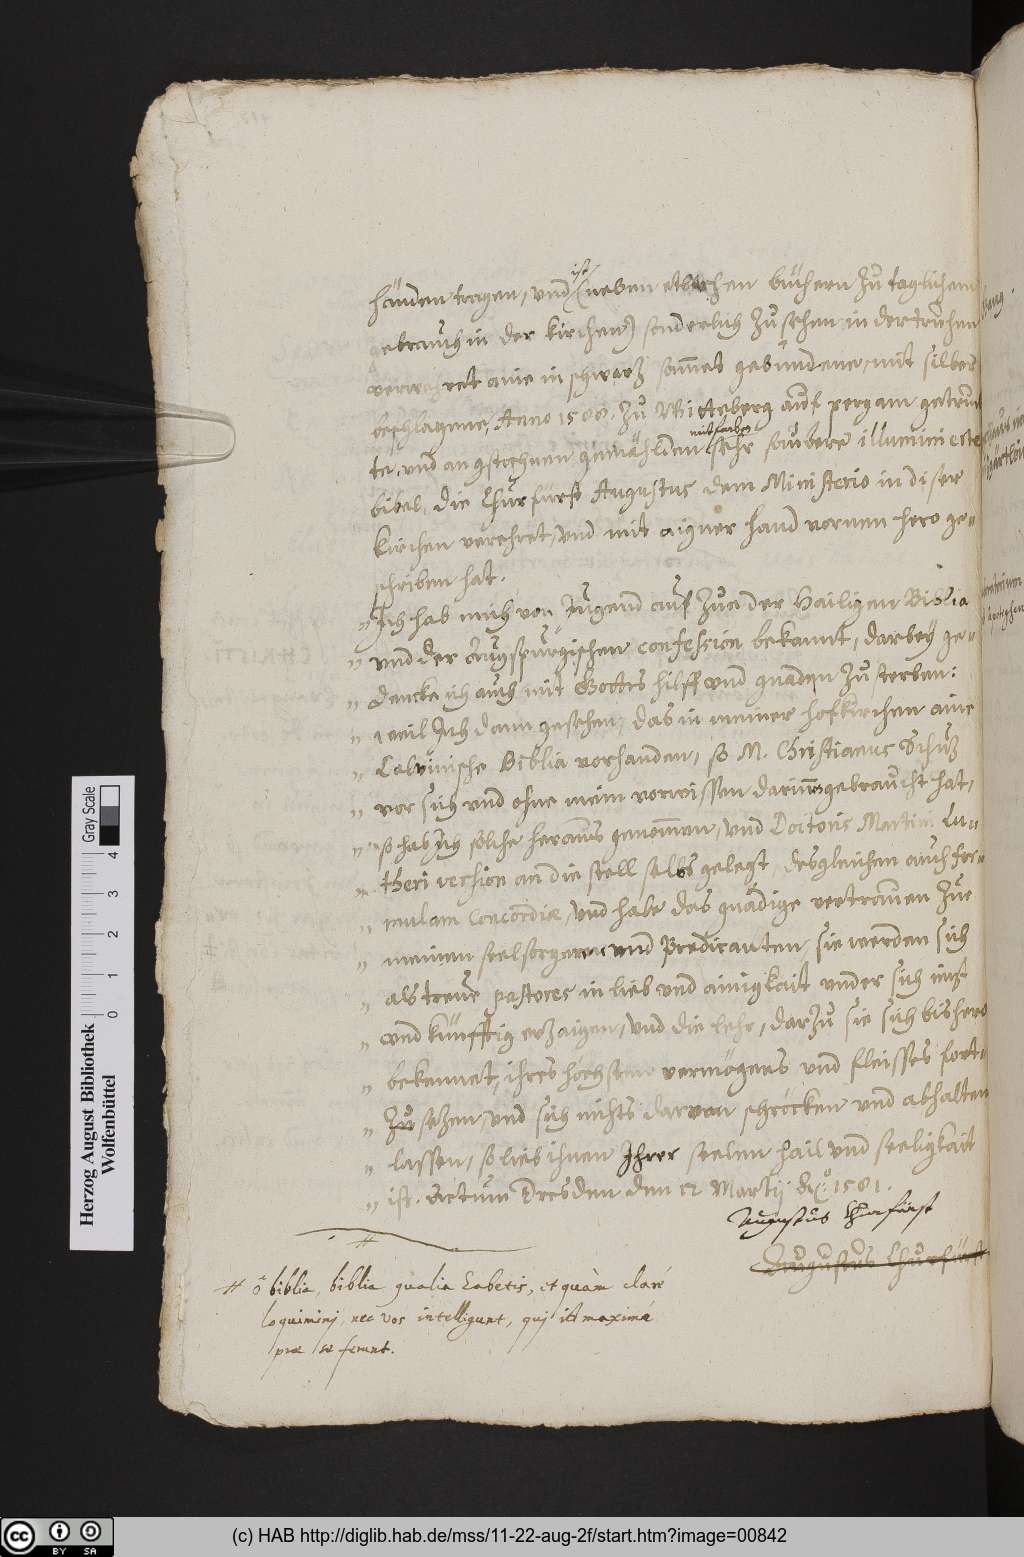 händen tragen, und ist (neben etlichen büchern zu täglichem
gebrauch in der kirchen) sonderlich zusehen in der trühen
verwahret aine in schwarz sammet gebundene, mit silber
beschlagene, Anno 1500. zu Witteberg auf pergam getruck
te, und an gstochnen gmählden mit farben sehr saubere illuministe
bibel, die Churfürst Augustus dem Ministerio in diser
kirchen verehret, und mit aigner hand vornen hero ge=
schriben hat.
„ Ich hab mich von Jugend auf zu der Hailigen Biblia
„ und der Augspurgischen confession bekannt, darbey ge=
„ dencke ich auch mit Gottes hilff und gnaden zu sterben:
„ weil Ich dann gesehen, das in meiner hofkirchen aine
„ Calvinische Biblia vorhanden, so M. Christianus Schuz
„ vor sich und ohne mein vorwissen darinn gebraucht hat,
„ so hab Ich solche heraus genommen, und Doctoris Martini Lu=
„ theri version an die stell selbs gelegt, desgleichen auch for=
„ mulam Concordiæ, und habe das gnädige vertrauen zue
„ meinen seelsorgeren und Predicanten, sie werden sich
„ als treue pastores in lieb und ainigkait under sich iezt
„ und künfftig erzaigen, und die lehr, darzu sie sich bishero
„ bekennet, ihres höchsten vermögens und fleisses fort=
„ zusezen, und sich nichts darvon schröcken und abhalten
„ lassen, so lieb ihnen Ihrer seelen hail und seeligkait
„ ist. Actum Dresden den 12 Martij. A.º 1581.
Augustus Churfürst
Augustus Churfürst
#
# ô biblia, biblia qualia habetis, et quàm claré
loquimini, nec vos intelligunt, quj id maximé
præ se ferunt.
Herzog August Bibliothek
Wolfenbüttel
0 1 2 3 4
Gray Scale
cc BY SA
(c) HAB http://diglib.hab.de/mss/11-22-aug-2f/start.htm?image=00842